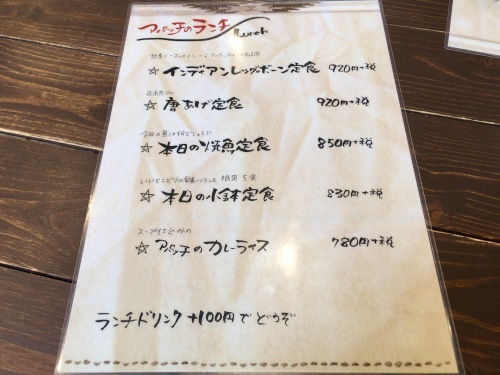 アパッチのランチ Lunch
☆ インディアンレッグボーン定食 920円+税
☆ 唐あげ定食 920円+税
今日の魚は何でしょう?!
☆ 本日の焼魚定食 850円+税
限定 5食
☆ 本日の小鉢定食 830円+税
☆ アパッチのカレーライス 780円+税
ランチドリンク +100円で どうぞ